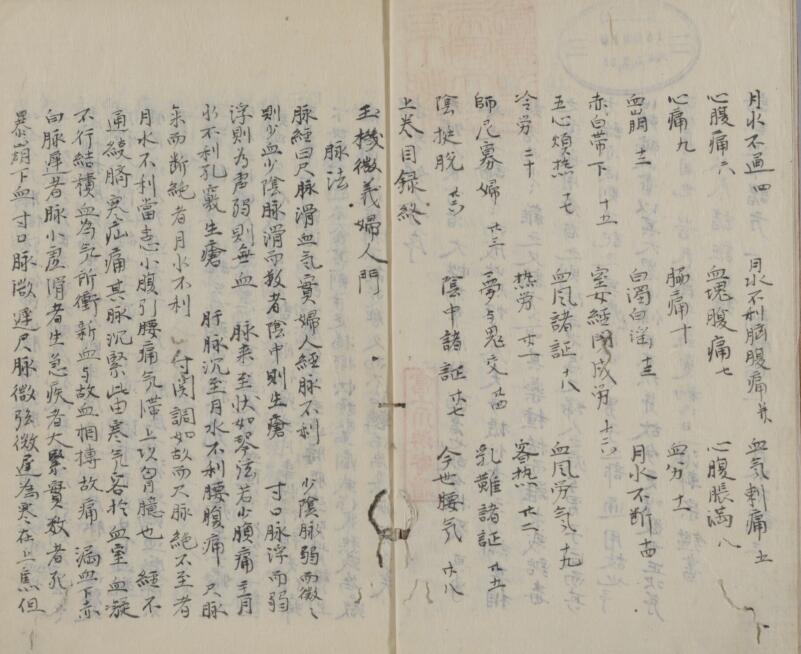 月水不通 四 月水不利臍腹痛 并 血気刺痛 五
心腹痛 六 血塊腹痛 七 心腹脹満 八
心痛 九 腸痛 十 血分 十一
血崩 十二 白濁白淫 十三 月水不断 十四
赤白帯下 十五 室女經閉成労 十六
五心煩热 十七 血風諸証 十八 血風労気 十九
冷労 二十 热労 廿一 客热 廿二
師尼寡婦 廿三 夢与鬼交 廿四 乳難諸証 廿五
陰挺脱 廿六 陰中諸証 廿七 今世腰気 廿八
上巻目録終
玉機微義婦人門
脉法
脉經曰尺脉滑血気實婦人經脉不利 少陰脉弱而微々
則少血少陰脉滑而数者陰中則生瘡 寸口脉浮而弱
浮則為虚弱則無血 脉来至状如琴弦若少腹痛主月
水不利孔竅生瘡 肝脉沉至月水不利腰腹痛 尺脉
来而断絶者月水不利 寸関調如故而尺脉絶不至者
月水不利當患小腹引腰痛気滞上以胷臆也 經不
通繞臍寒疝痛其脉沉緊此由寒気客於血室血凝
不行結積血為気所衝新血与故血相搏故痛 漏血下赤
白脉遅者脉小虚滑者生急疾者大緊實数者死
暴崩下血寸口脉微遅尺脉微弦微遅為寒在上焦但